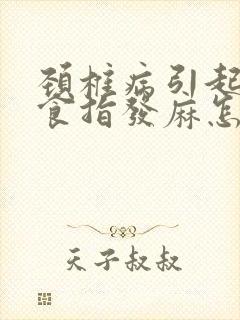 頚椎病引起
食指發麻怎
天子叔叔